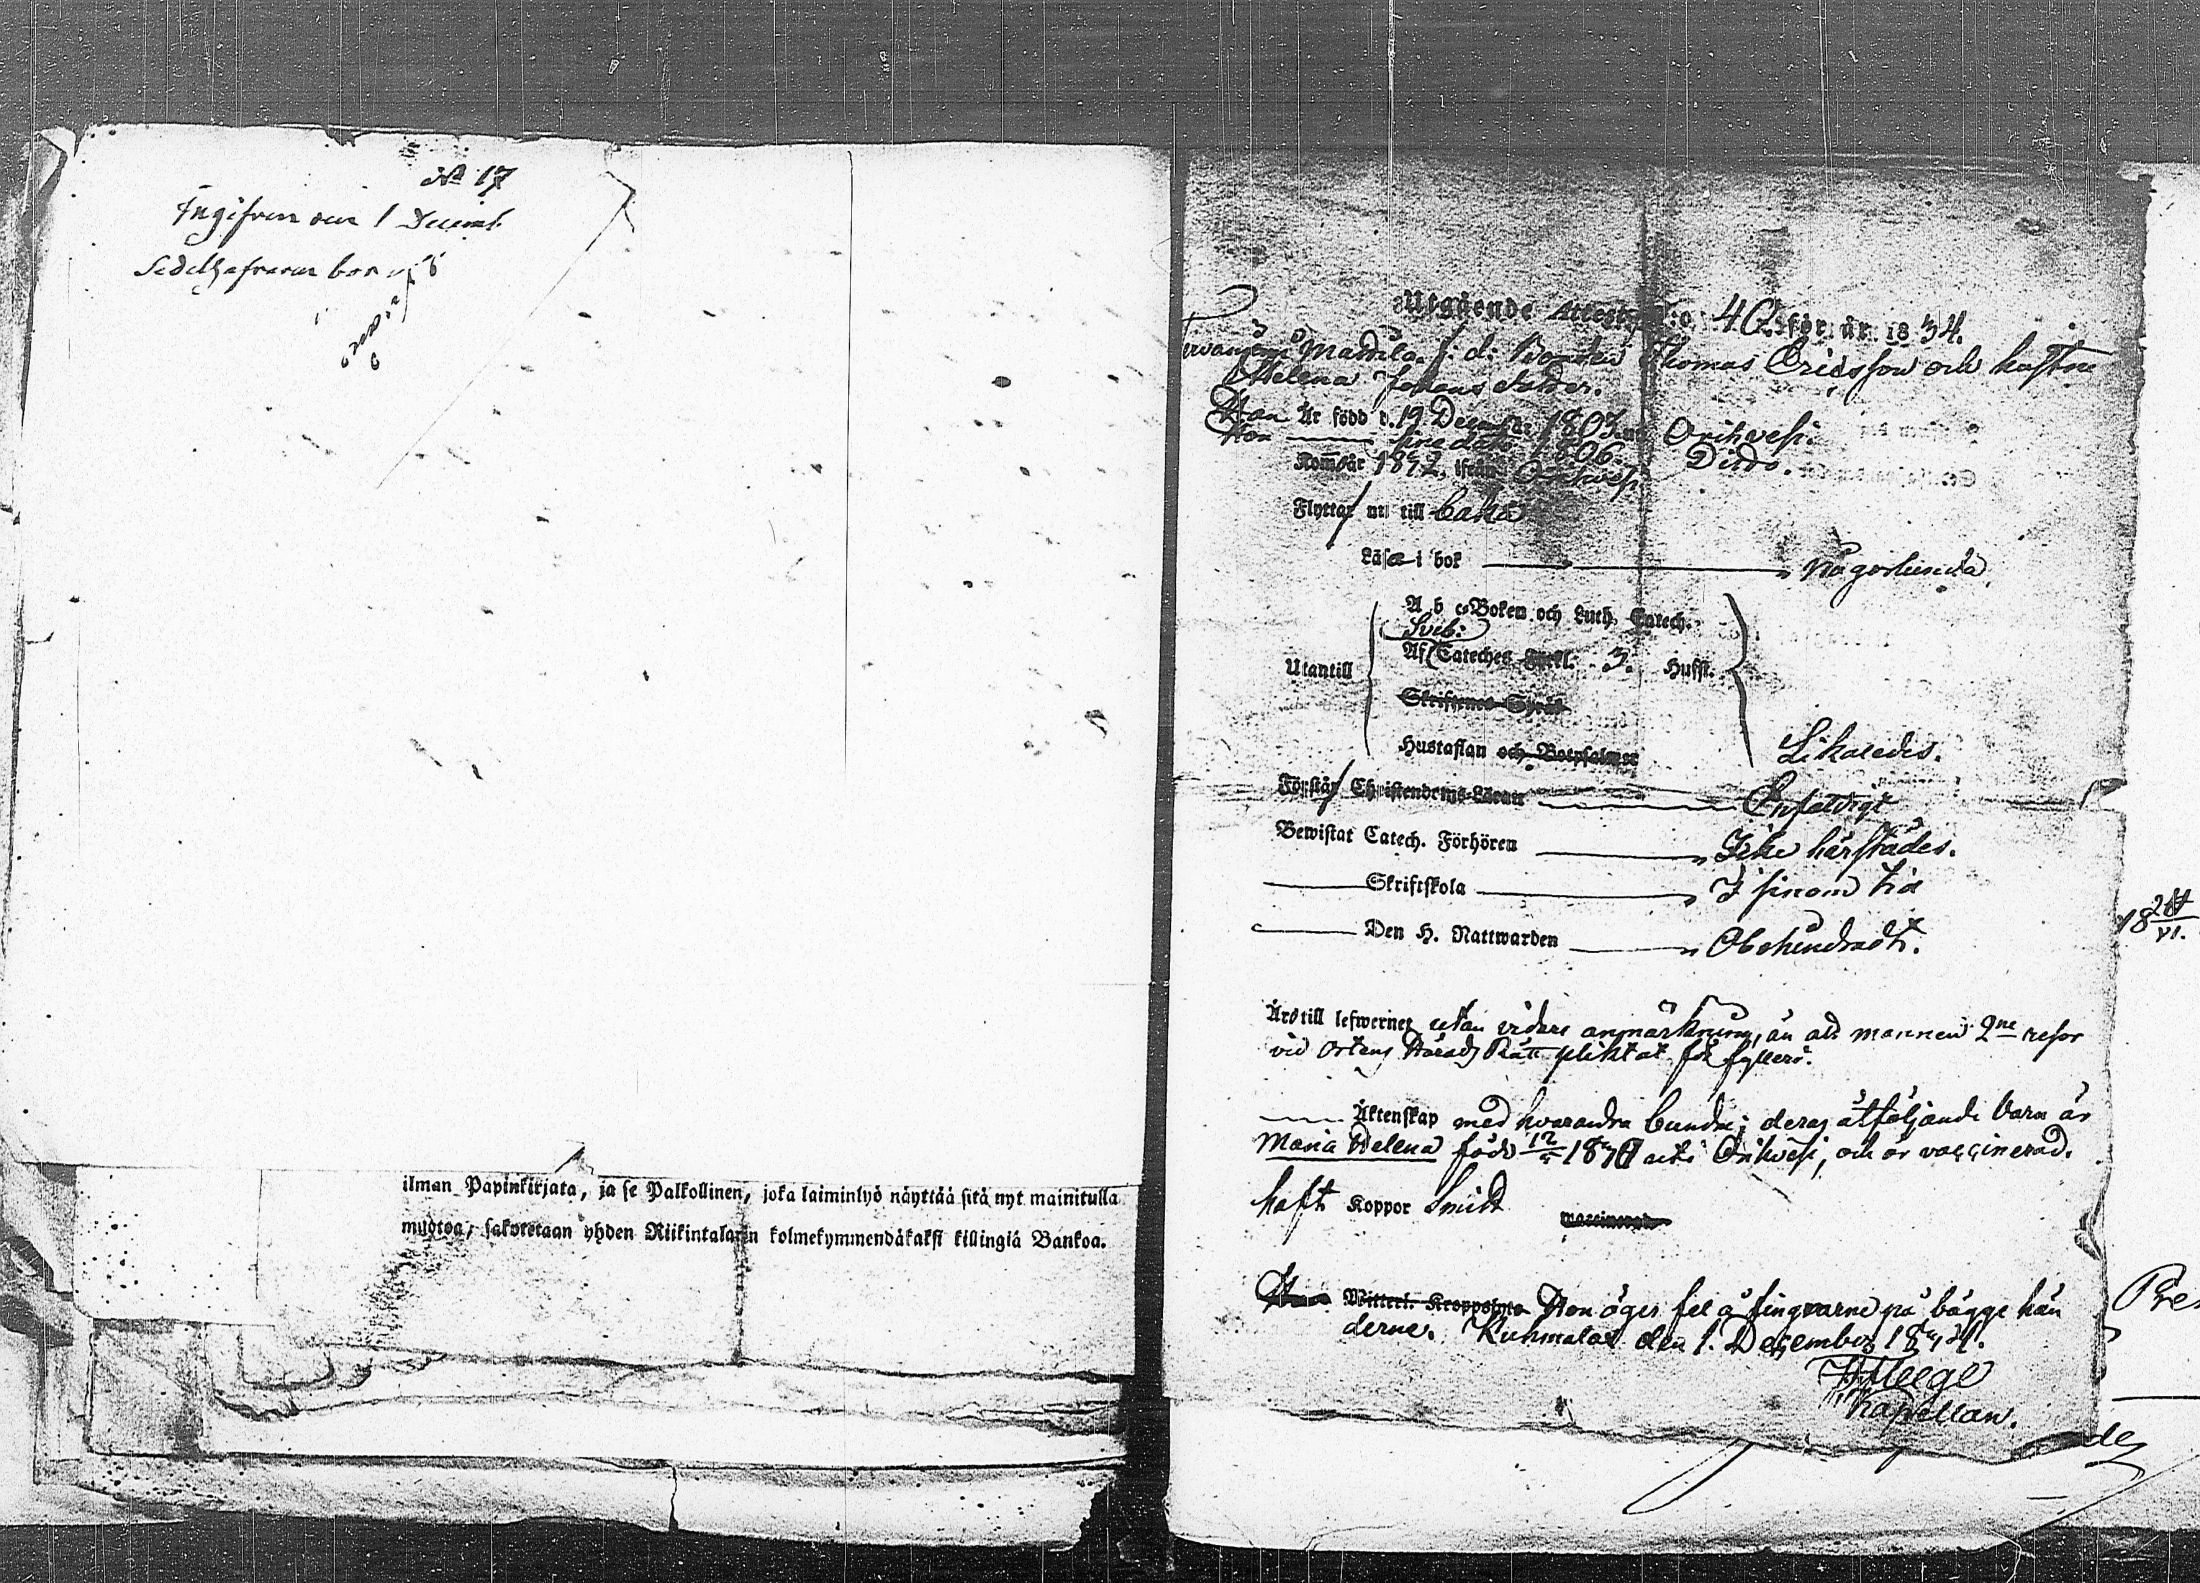 No 17
Ingifven den 1 Decemb.
ilman Papinkirjata, ja se Palkollinen, joka laiminlyö näyttää sitä nyt mainitulla
muotoa, sakotetaan yhden Riikintalarin kolmekymmendäkaksi killingiä Bankoa.
Utgående Attest N:o 40 för år 1834.
Mattila f: d: Bonden Thomas Ericsson och hustru
Helena Johans dotter.
Han Är född d. 19 Decemb. 1803 uti Orihvesi
Hon 1806 Dito.
Kom år 1832 ifrån Orihvesi
Flyttar nu till baka
Läsa i bok någorlunda
A b c-Boken och Luth. Catech.
Sveb:
Af Cateches Förkl. 3. Hufst.
Utantill
Skriftenes Språk
Hustaflan och Botpsalmer
Likaledes.
Förstår Christendoms-Läran Enfaldigt
Bewistat Catech. Förhören Icke härstädes.
Skriftskola I sinom tid
Den H. Nattwarden Obehindradt.
Äro till lefwernet utan vidare anmärkning, än att mannen 2ne resor
vid Ortens Härads Rätt pliktat för fylleri.
Äktenskap med hvarandra bundne; deras åtföljande barn är
Maria Helena född 12 18 uti Orihvesi, och är vaccinerad.
haft Koppor Smitt
vaccinerad
Witterl. Kroppslyte Hon äger fel å fingrarne på bägge hän
derne. Kuhmalax den 1. December 1834.
Kapellan.